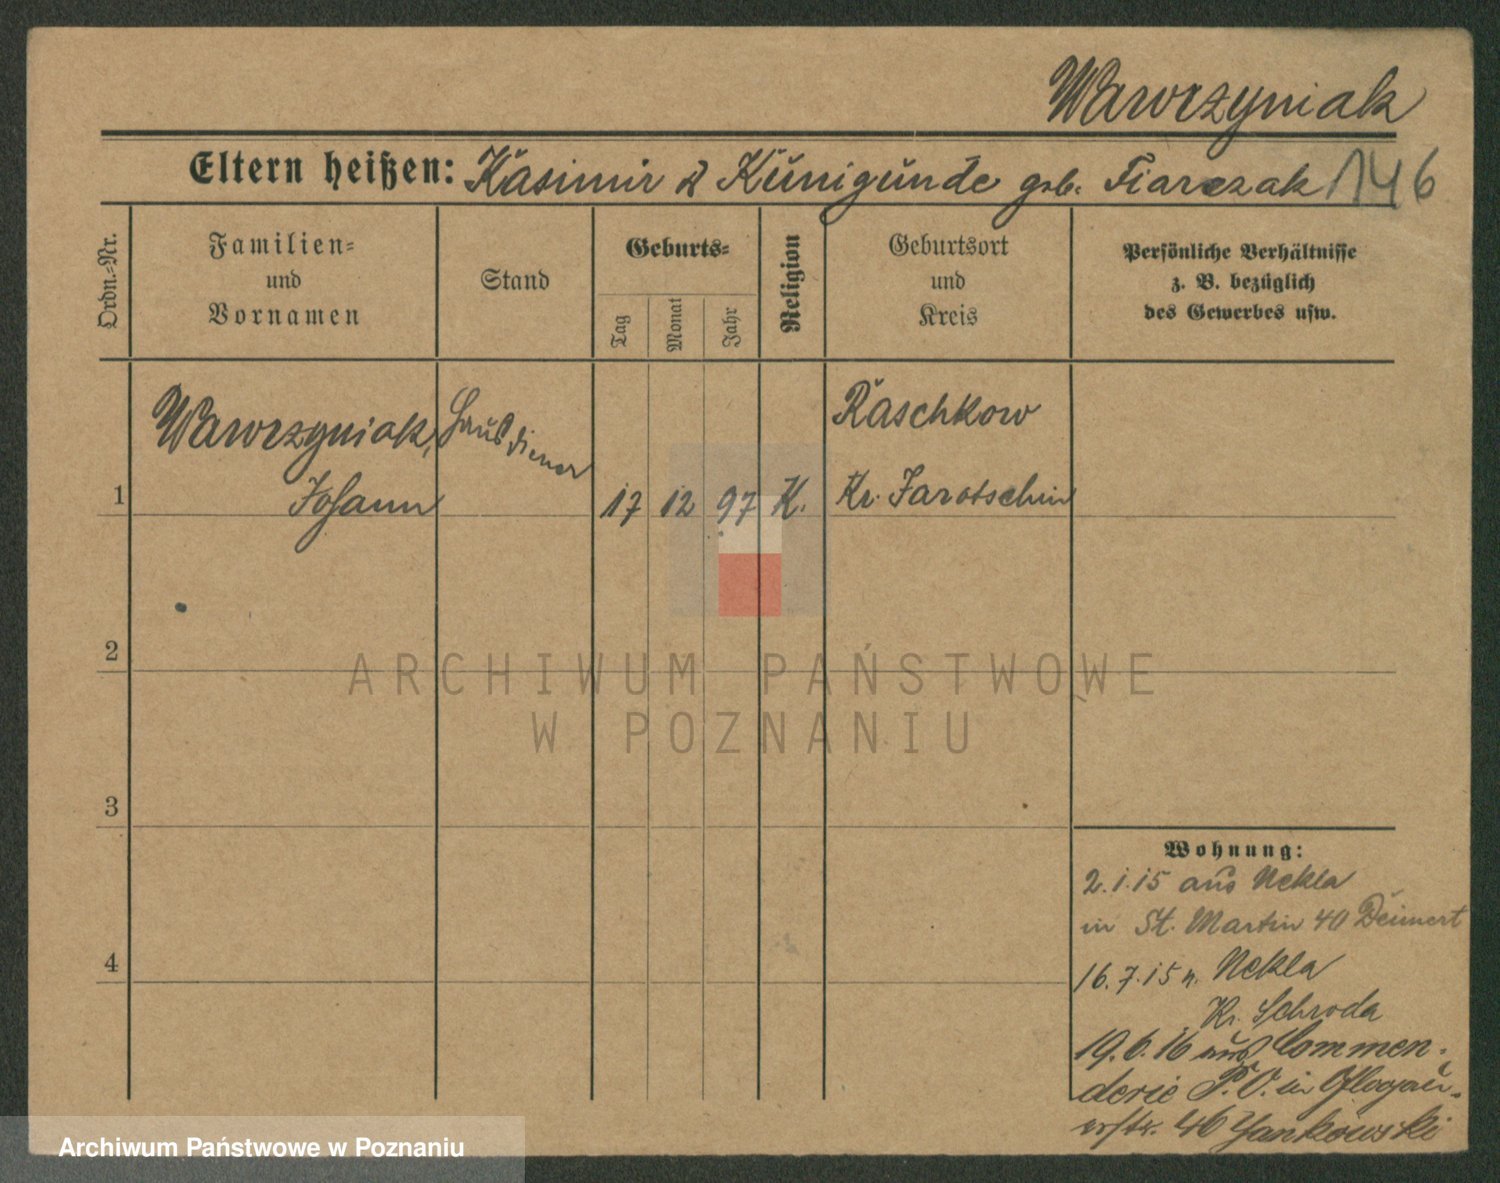 Wawrzyniak
Eltern heißen: Kasimir & Kunigunde geb. Fiarczak 146
Ordn.=Nr.
Familien=
und
Vornamen
Stand
Geburts=
Tag
Monat
Jahr
Religion
Geburtsort
und
Kreis
Persönliche Verhältnisse
z. B. bezüglich
des Gewerbes usw.
1
Wawrzyniak,
Johann
Hausdiener
17 12 97 K.
Raschkow
Kr. Jarotschin
2
3
4
Wohnung:
2.1.15 aus Nekla
in St. Martin 40 Deimert
16.7.15 n. Nekla
Kr. Schroda
19.6.16 aus Commen-
derie P. O. in Glogau-
erstr. 46 Jankowski
ARCHIWUM PAŃSTWOWE
W POZNANIU
Archiwum Państwowe w Poznaniu